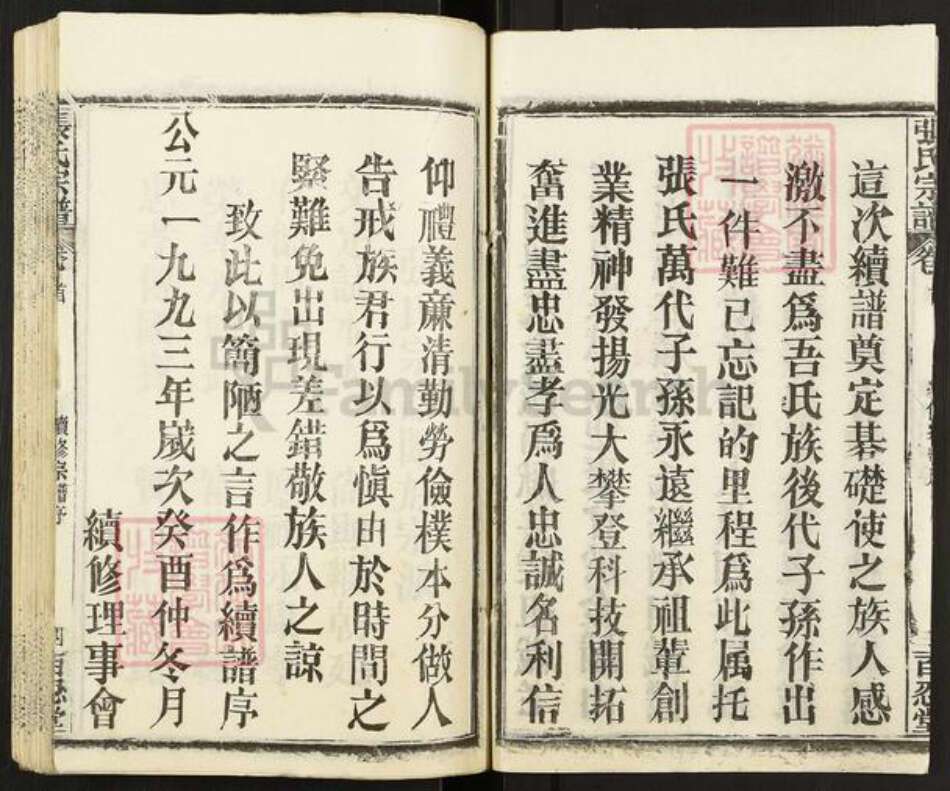 這次續譜奠定碁礎使之族人感
激不盡爲吾氏族後代子孫作出
一件難已忘記的里程爲此属托
張氏萬代子孫永遠繼承祖輩創
業精神發揚光大攀登科技開拓
奮進盡忠盡孝爲人忠誠名利信
仰禮義亷清勤勞儉樸本分做人
告戒族君行以爲愼由於時間之
緊難免出現差錯敬族人之諒
致此以簡陋之言作爲續譜序
公元一九九三年歲次癸酉仲冬月
續修理事會
張氏宗譜
卷首
續修宗譜序
四百忍堂
張氏宗譜
卷
百忍堂
FamilySearch